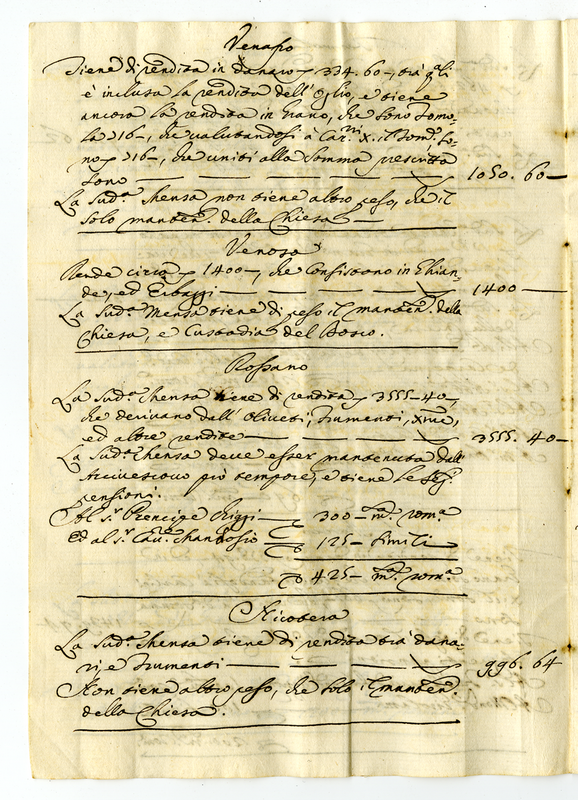 Venafro
Tiene di rendita in danaro 334. 60—, trà q.li
è inclusa la rendita dell'oglio, e tiene
ancora la rendita in Grano, che sono tomo:
la 716—, che valutandosi à Car.ni X. il tom.o, so:
no 716—, che uniti alla somma prescritta
sono — — — — — — 1050. 60—
La Sud.a Mensa non tiene altro peso, che il
solo manten.to della Chiesa —
Venosa
Rende circa 1400—, che consistono in Ghian:
de, ed Erbaggi — — — — 1400 —
La Sud.a Mensa tiene di peso il manten.to della
Chiesa, e Custodia del Bosco.
Rossano
La Sud.a Mensa tiene di rendita 3555-40—,
che derivano dall'Oliveti, frumenti, Xme,
ed altre rendite — — — — 3555. 40—
La Sud.a Mensa deve esser mantenuta dall'
Arcivescovo pro tempore, e tiene le seg.ti
pensioni.
Al S.r Prencipe Ghigi — 300— m.ta rom.a
Ed al S.r Cav.re 125— simili
425— m.ta rom.a
Nicotera
La Sud.a Mensa tiene di rendita trà dana:
ri, e frumenti — — — — 996. 64
Non tiene altro peso, che solo il manten.to
della Chiesa.